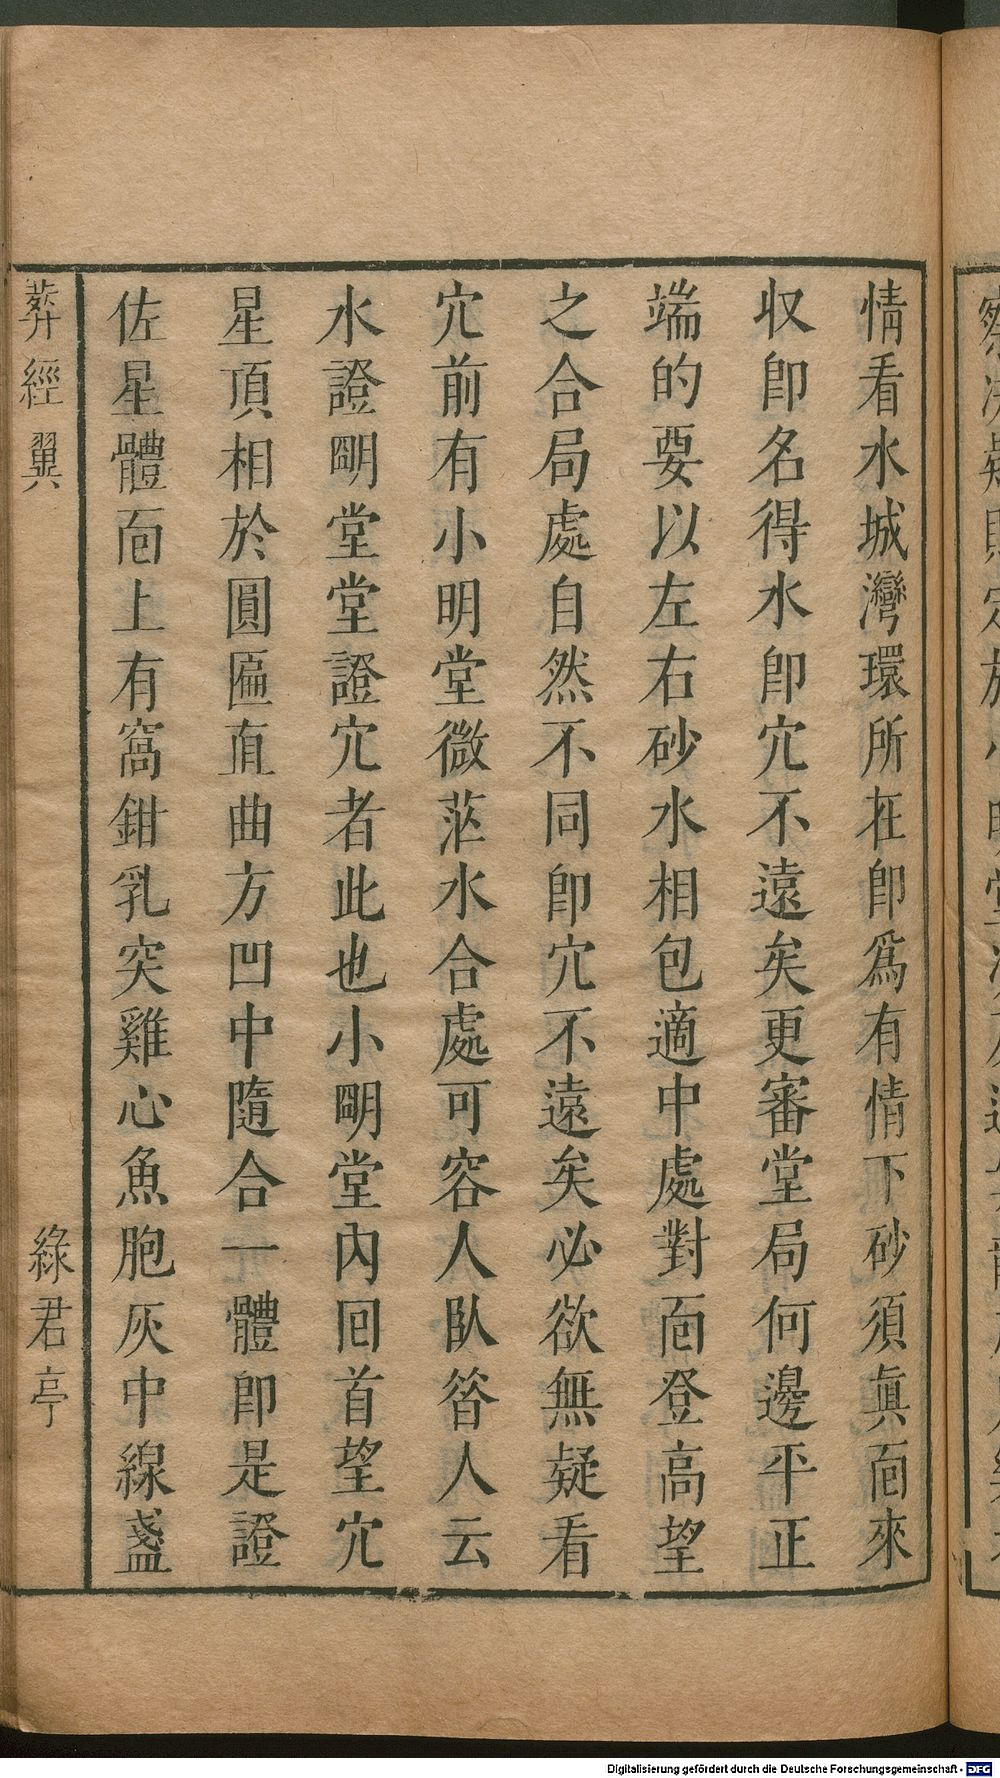 情看水城灣環所在卽爲有情下砂須眞面來
収卽名得水卽穴不遠矣更審堂局何邊平正
端的要以左右砂水相包適中處對面登高望
之合局處自然不同卽穴不遠矣必欲無疑看
穴前有小明堂微茫水合處可容人臥昝人云
水證朙堂堂證穴者此也小朙堂內回首望穴
星頂相於圓匾直曲方凹中隨合一體卽是證
佐星體面上有窩鉗乳突雞心魚胞灰中線盞
葬經翼
綠君亭
Digitalisierung gefördert durch die Deutsche Forschungsgemeinschaft - DFG